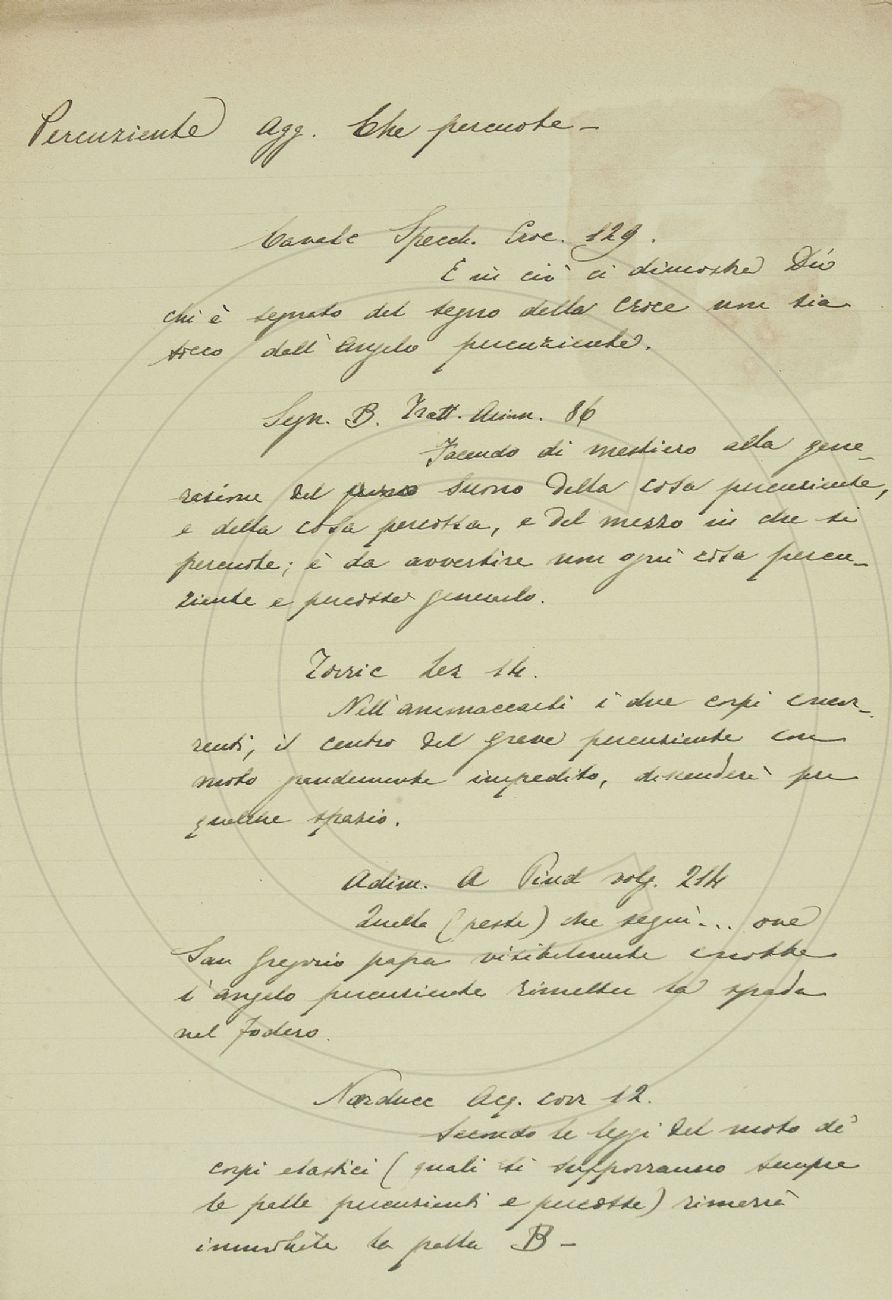 Percuziente agg. Che percuote —
Cavalc Specch. Croc. 129.
E in ciò ci dimostra Dio
chi è segnato del segno della croce non sia
tocco dall'angelo percuziente.
Segn. B. Tratt. Anim. 86
Facendo di mestiero alla gene-
razione del suono della cosa percuziente,
e della cosa percossa, e del mezzo in che si
percuote; è da avvertire non ogni cosa percu-
ziente e percossa generarlo.
Torric Lez 14.
Nell'ammaccarsi i due corpi concor-
renti, il centro del grave percuziente con
moto grandemente impedito, descenderà per
qualche spazio.
Adim. A Pind volg. 214
Quella (peste) che seguì... ove
San Gregorio papa visibilmente conobbe
l'angelo percuziente rimetter la spada
nel fodero.
Narducc Acq. corr 12.
Secondo le leggi del moto de'
corpi elastici (quali si supporranno sempre
le palle percuzienti e percosse) rimarrà
immobile la palla B —